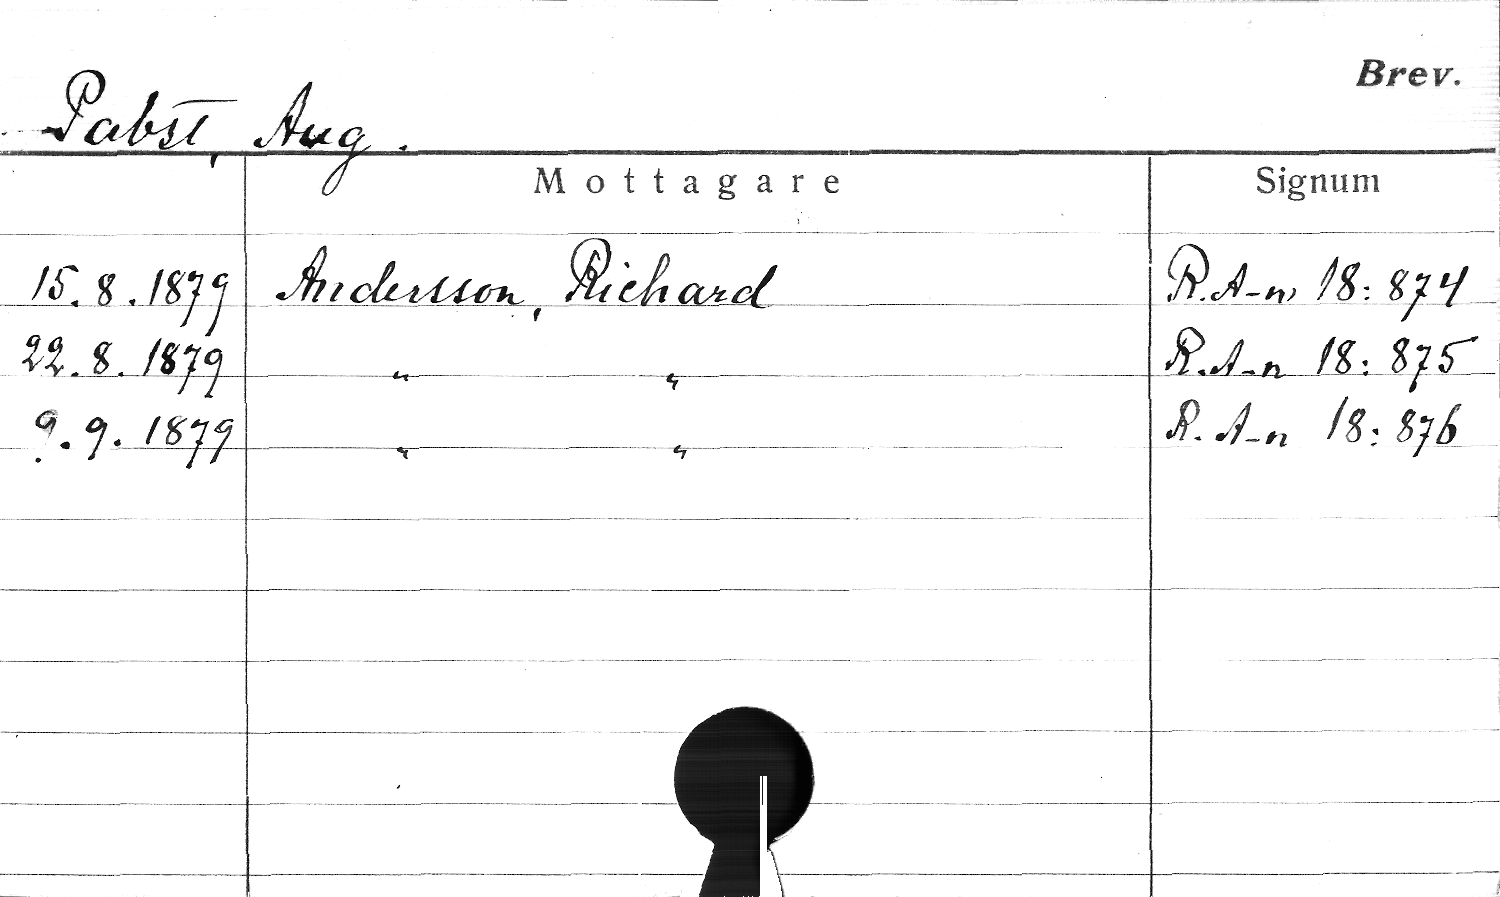 Brev.
Pabst, Aug.
Mottagare Signum
15.8.1879 Andersson, Richard R.A-n 18:874
22.8.1879 " " R.A-n 18:875
9.9.1879 " " R.A-n 18:876